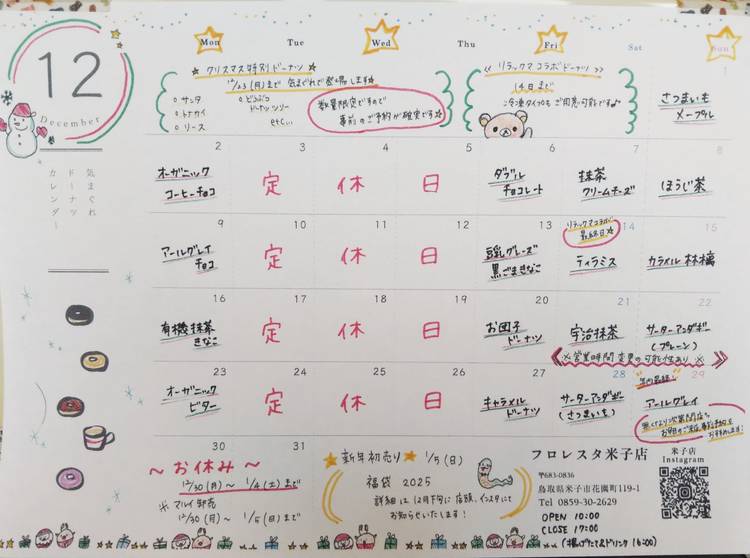 12
December
気まぐれ
ドーナツ
カレンダー
Mon
Tue
Wed
Thu
Fri
Sat
Sun
☆ クリスマス特別ドーナツ ☆
12/23(月)まで 気まぐれで登場します☆
○ サンタ
○ トナカイ
○ リース
○ どうぶつ
ドーナッツツリー
etc...
数量限定ですので
事前のご予約が確実です☆
<< リラックマコラボドーナツ >>
14日まで
○冷凍タイプもご用意可能です♪
1
さつまいも
メープル
2
オーガニック
コーヒーチョコ
3
定
4
休
5
日
6
ダブル
チョコレート
7
抹茶
クリームチーズ
8
ほうじ茶
9
アールグレイ
チョコ
10
定
11
休
12
日
13
豆乳グレーズ
黒ごまきなこ
14
リラックマコラボ
最終日☆
ティラミス
15
カラメル林檎
16
有機抹茶
きなこ
17
定
18
休
19
日
20
お団子
ドーナツ
21
宇治抹茶
22
サーターアンダギー
(プレーン)
※営業時間変更の可能性あり※
23
オーガニック
ビター
24
定
25
休
26
日
27
キャラメル
ドーナツ
28
サーターアンダギー
(さつまいも)
29
年内最終!
アールグレイ
無くなり次第閉店です
30
31
～お休み～
12/30(月)～1/4(土)まで
※マルイ卸売
12/30(月)～1/5(日)まで
☆新年初売り☆ 1/5(日)
福袋 2025
詳細は12月下旬に店頭、インスタにて
お知らせいたします!
フロレスタ米子店
〒683-0836
鳥取県米子市花園町119-1
Tel 0859-30-2629
OPEN 10:00
CLOSE 17:00
(揚げたて&ドリンク 16:00)
米子店
Instagram